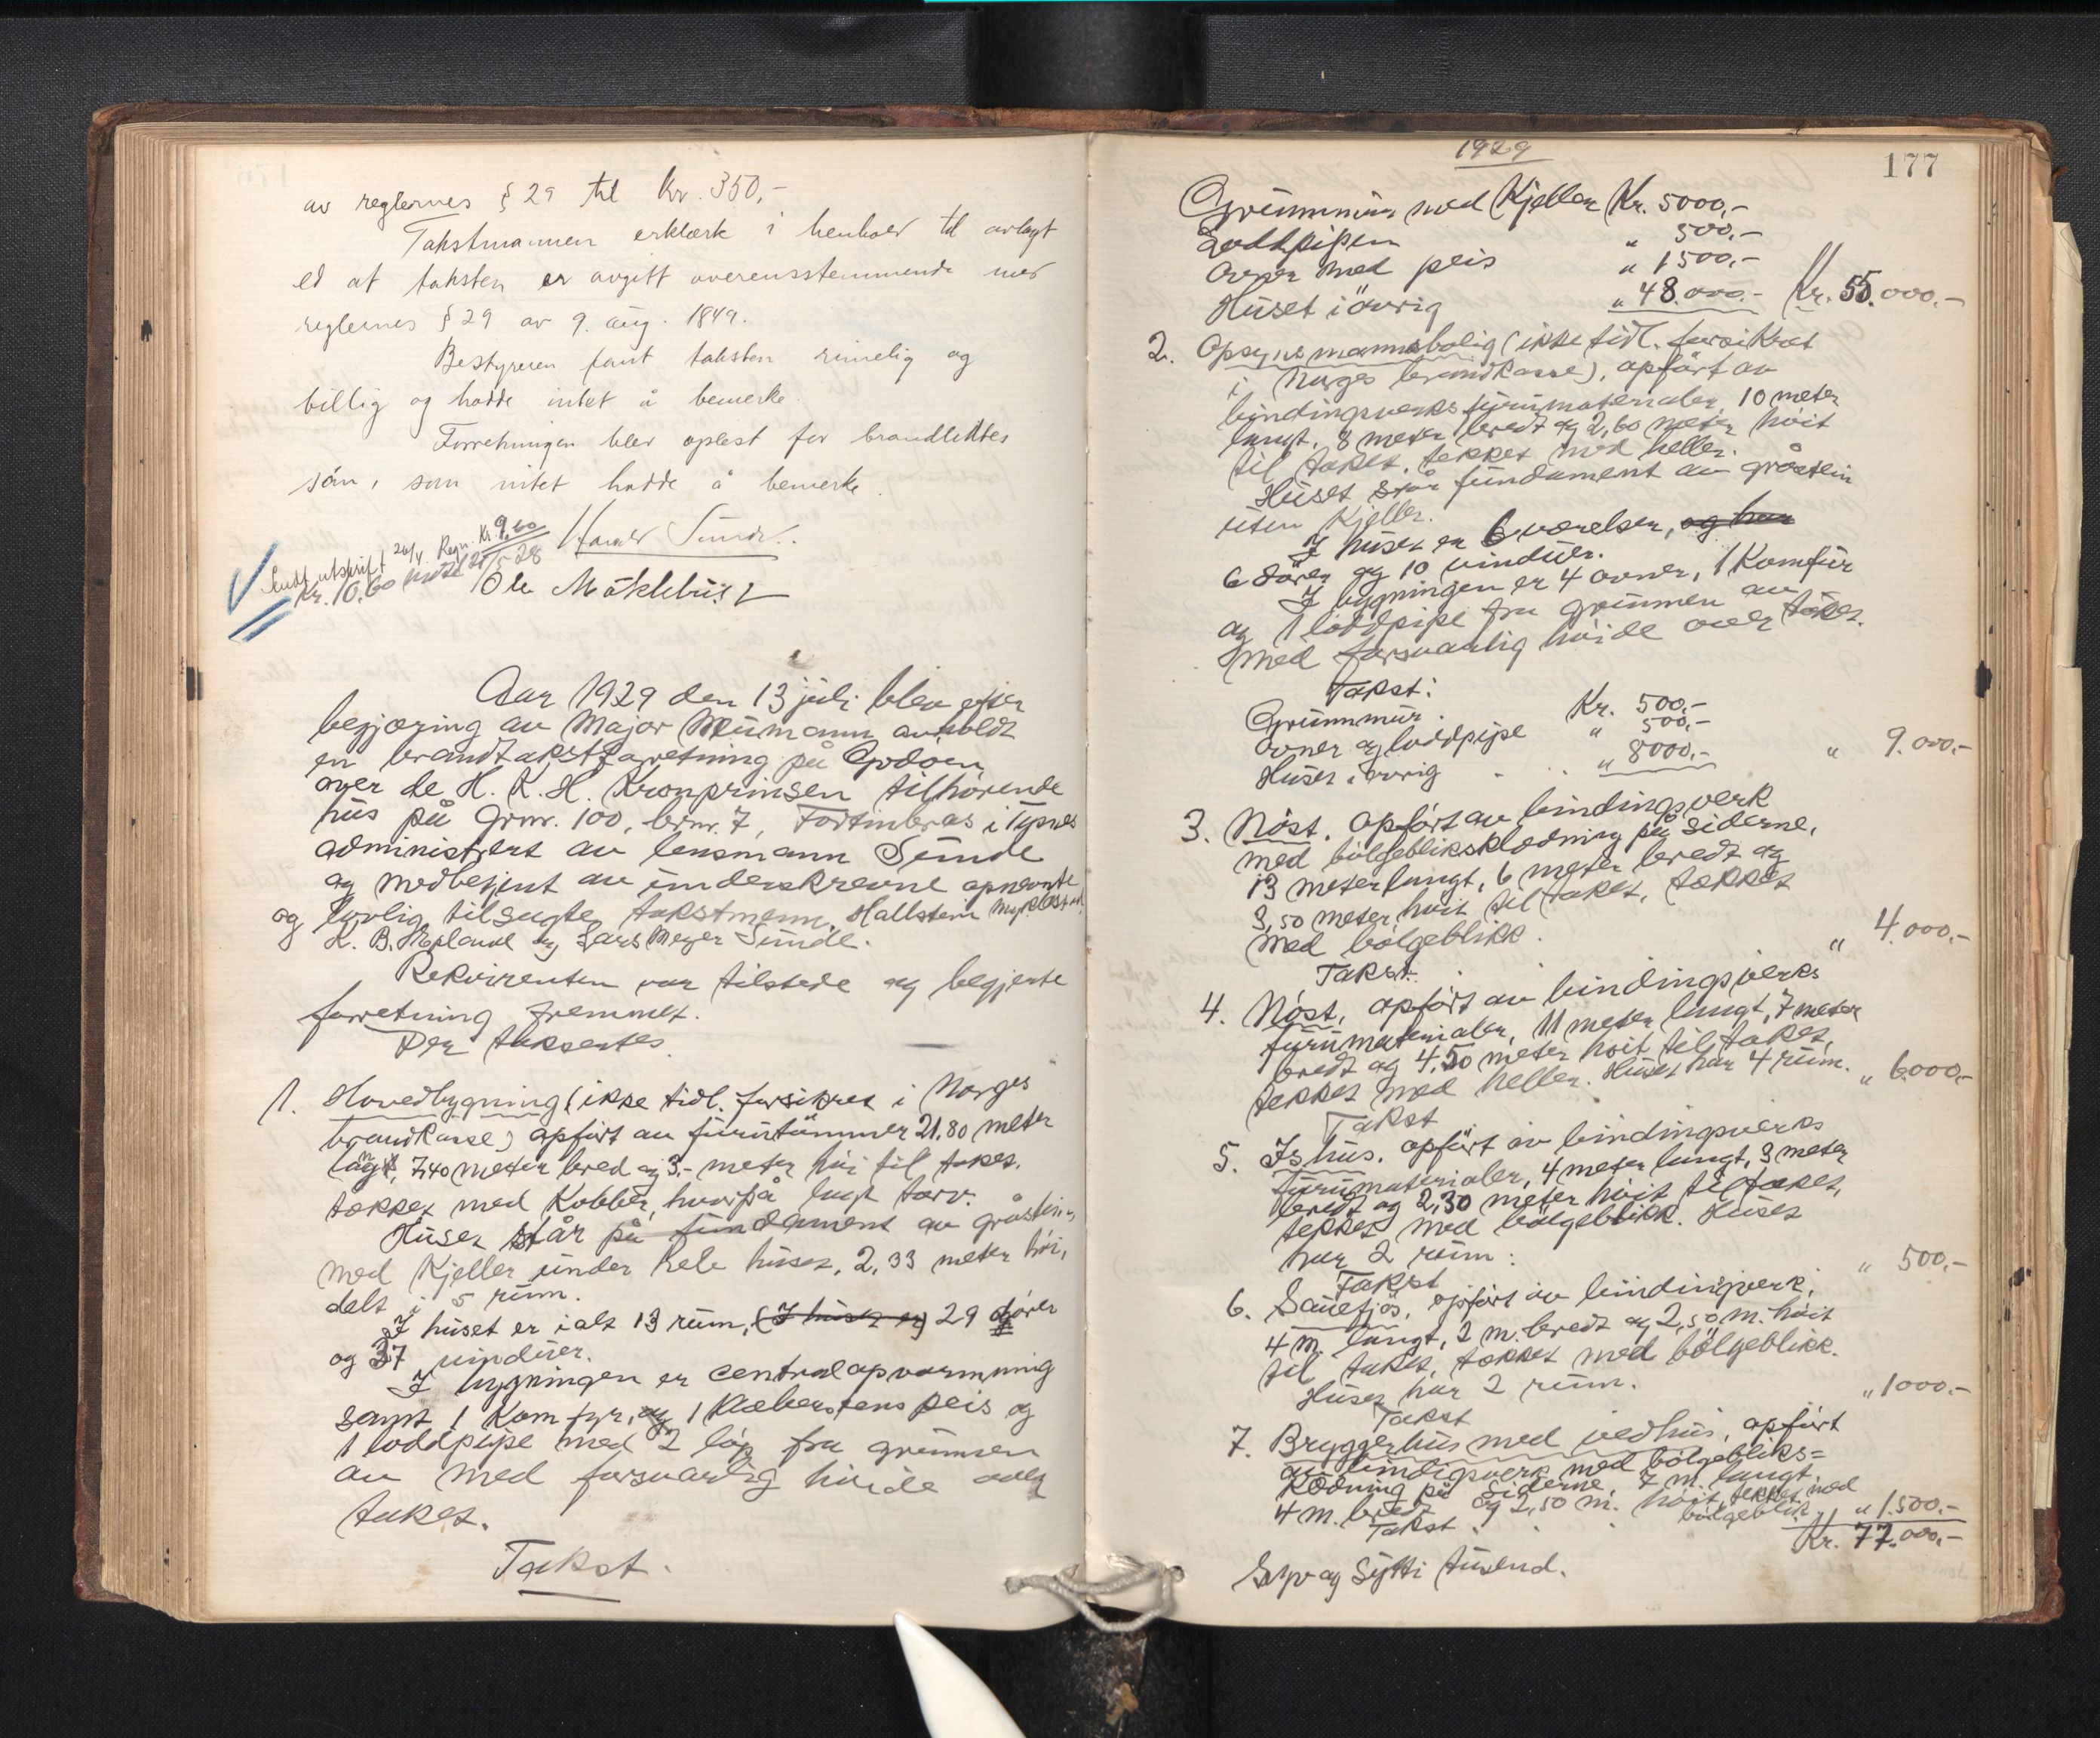 av reglernes § 29 til Kr. 350,-
Takstmannen erklærte i henhold til avlagt
ed at taksten er avgitt overensstemmende med
reglernes § 29 av 9. aug. 1849.
Bestyreren fant taksten rimelig og
billig og hadde intet å bemerke.
Forretningen blev oplest for brandlidtes
sön, som intet hadde å bemerke.
Sunde.
Sendt utskrift 20/4 Regn. Kr. 9.60
Kr. 10.60 28
Ole Möklebust
Aar 1929 den 13 juli blev efter
begjæring av Major Neumann avholdt
en brandtakstforretning på Godöen
over de H. K. H. Kronprinsen tilhörende
hus på Grnr. 100, brnr. 7, Fortinbras i
administrert av lensmann Sunde
og medbetjent av underskrevne opnevnte
og lovlig tilsagte takstmenn, Hallstein Myklebust,
K. B. og Lars Meyer Sunde.
Rekvirenten var tilstede og begjerte
forretning fremmet.
Der takseertes
1. Hovedbygning (ikke tidl. forsikret i Norges
brandkasse) opfört av furutömmer 21,80 meter
langt, 7,40 meter bred og 3,- meter höi til taket,
tækket med Kobber, hvorpå lagt torv.
Huset står på fundament av gråstein,
med Kjeller under hele huset, 2,33 meter höi,
delt i 5 rum.
I huset er ialt 13 rum, (I huset er) 29 dörer
og 37 vinduer.
I bygningen er centralopvarmning
samt 1 Komfyr, og 1 Klæberstens peis og
1 loddpipe med 2 löp fra grunnen
av med forsvarlig höide over
taket.
Takst.
1929
177
Grunnmur med Kjeller Kr. 5000,-
Loddpipen " 500,-
Ovner med peis " 1500,-
Huset i övrig " 48.000,- Kr. 55.000,-
2. Opsynsmannsbolig (ikke tidl. forsikret
i Norges brandkasse), opfört av
bindingsverks furumaterialer, 10 meter
langt, 8 meter bredt og 2,60 meter höit
til taket, tekket med heller.
Huset står fundament av gråstein
uten Kjeller.
I huset er 6 værelser, og har
6 dörer og 10 vinduer.
I bygningen er 4 ovner, 1 Komfur
og 1 loddpipe fra grunnen av
med forsvarlig höide over taket.
Takst:
Grunnmur. Kr. 500,-
Ovner og loddpipe " 500,-
Huset i övrig " 8000,- " 9.000,-
3. Nöst, opfört av bindingsverk
med bölgebliksklædning på siderne,
13 meter langt, 6 meter bredt og
3,50 meter höit til taket, tækket
med bölgeblikk.
Takst. " 4.000,-
4. Nöst, opfört av bindingsverks
furumaterialer, 11 meter langt, 7 meter
bredt og 4,50 meter höit til taket,
tekket med heller. Huset har 4 rum.
Takst " 6000,-
5. Ishus, opfört av bindingsverks
furumaterialer, 4 meter langt, 3 meter
bredt og 2,30 meter höit til taket,
tekket med bölgeblikk. Huset
har 2 rum.
Takst " 500,-
6. Sauefjös, opfört av bindingsverk,
4 m. langt, 2 m. bredt og 2,50 m. höit
til taket, tækket med bölgeblikk.
Huset har 2 rum.
Takst " 1000,-
7. Bryggerhus med vedhus, opfört
av bindigsverk med bölgebliks=
klædning på siderne, 7 m. langt,
4 m. bredt og 2,50 m. höit, tekket med
bölgeblik.
Takst " 1.500,-
Kr. 77.000,-
Syv og Sytti tusend.